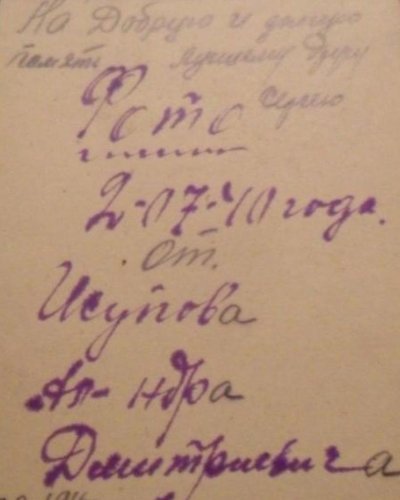 На Добрую и долгую
память лучшему другу
Сергею
Фото
2-07-40 года.
от.
Исупова
Ал-ндра
Дмитриевича